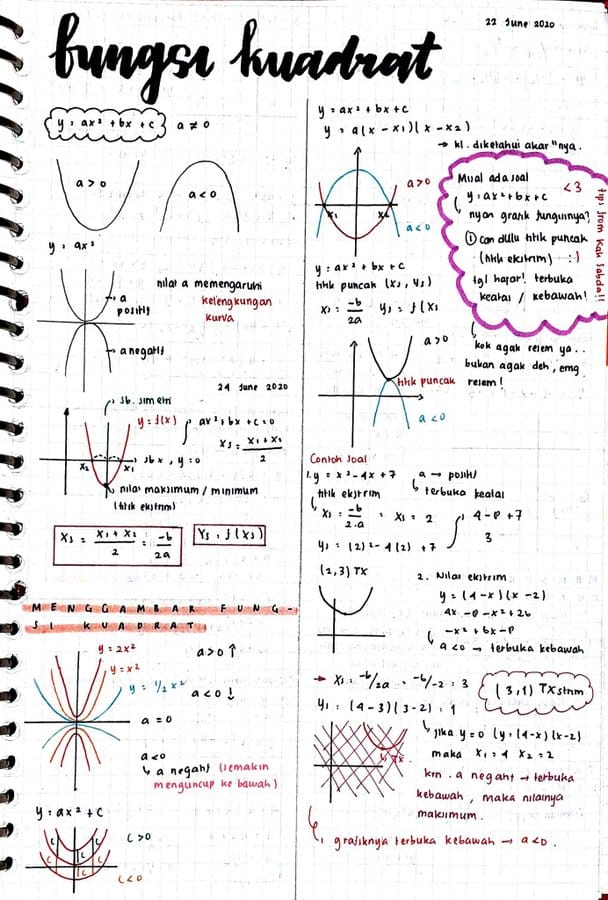 22 June 2020
fungsi kuadrat
y = ax² + bx + c a ≠ 0
a > 0
a < 0
y = ax²
a
positif
a negatif
nilai a memengaruhi
kelengkungan
kurva
24 June 2020
sb. simetri
y = f(x)
ax² + bx + c = 0
xs = x1 + x2 / 2
sbx, y = 0
x2
x1
nilai maksimum / minimum
(titik ekstrim)
xs = x1 + x2 / 2 = -b / 2a
ys = f(xs)
MENGGAMBAR FUNG-
SI KUADRAT
y = 2x²
y = x²
y = ½ x²
a > 0 ↑
a < 0 ↓
a = 0
a < 0
↳ a negatif (semakin
menguncup ke bawah)
y = ax² + c
c > 0
c < 0
y = ax² + bx + c
y = a(x - x1)(x - x2)
→ kl. diketahui akar"nya.
a > 0
x1
x2
a < 0
y = ax² + bx + c
titik puncak (xs, ys)
xs = -b / 2a ys = f(xs
a > 0
titik puncak
a < 0
Mual ada soal <3
y = ax² + bx + c
nyari grafik fungsinya?
① cari dulu titik puncak
(titik ekstrim) :)
tgl hajar! terbuka
keatas / kebawah!
tips from Kak Sabda!!
kok agak relem ya..
bukan agak deh, emg
relem!
Contoh soal
1. y = x² - 4x + 7 a → positif
titik ekstrim ↳ terbuka keatas
xs = -b / 2.a = xs = 2
4 - 8 + 7
3
ys = (2)² - 4(2) + 7
(2,3) TX
2. Nilai ekstrim
y = (4-x)(x-2)
4x - 8 - x² + 2x
-x² + 6x - 8
↳ a < 0 → terbuka kebawah
→ xs = -b/2a = -6/-2 = 3
(3,1) TXstrim
ys = (4-3)(3-2) = 1
↳ jika y = 0 (y = (4-x)(x-2)
maka x1 = 4 x2 = 2
TX
krn. a negatif → terbuka
kebawah, maka nilainya
maksimum.
grafiknya terbuka kebawah → a < 0.